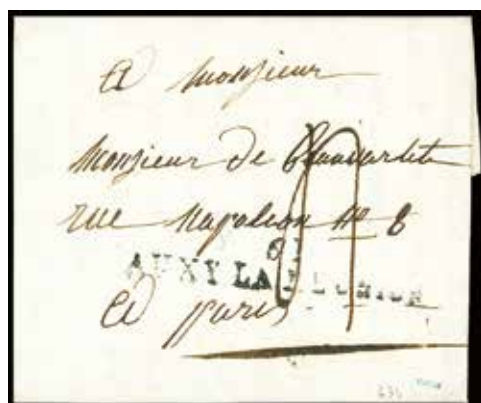 A Monsieur
Monsieur de
rue Napoleon No 8
61
AUXY LA REUNION
A Paris